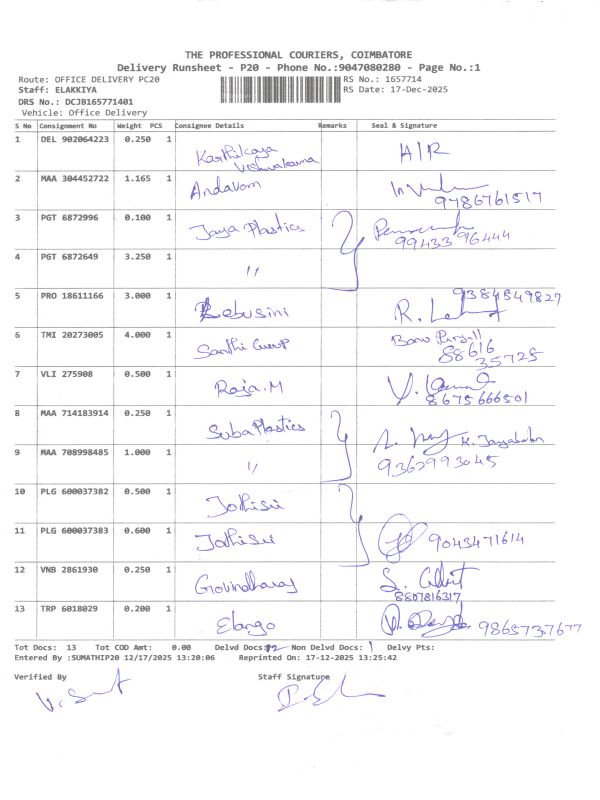 THE PROFESSIONAL COURIERS, COIMBATORE
Delivery Runsheet - P20 - Phone No.:9047080280 - Page No.:1
Route: OFFICE DELIVERY PC20 RS No.: 1657714
Staff: ELAKKIYA RS Date: 17-Dec-2025
DRS No.: DCJB165771401
Vehicle: Office Delivery
S No Consignment No Weight PCS Consignee Details Remarks Seal & Signature
1 DEL 902064223 0.250 1 Karthikaya Vishwakarma A/R
2 MAA 304452722 1.165 1 Andavan 9786761517
3 PGT 6872996 0.100 1 Jaya Plastics 99433 96444
4 PGT 6872649 3.250 1 "
5 PRO 18611166 3.000 1 Lebusini R. 9384849827
6 TMI 20273005 4.000 1 Santhi Group 88616 35725
7 VLI 275908 0.500 1 Raja.M 8675666501
8 MAA 714183914 0.250 1 Suba Plastics K. Jayababu
9 MAA 708998485 1.000 1 " 9362993045
10 PLG 600037382 0.500 1 Jothisri
11 PLG 600037383 0.600 1 Jothisri 9043471614
12 VNB 2861930 0.250 1 Govindharaj 8807816317
13 TRP 6018029 0.200 1 Elango 9865737677
Tot Docs: 13 Tot COD Amt: 0.00 Delvd Docs: 12 Non Delvd Docs: 1 Delvy Pts:
Entered By :SUMATHIP20 12/17/2025 13:20:06 Reprinted On: 17-12-2025 13:25:42
Verified By Staff Signature